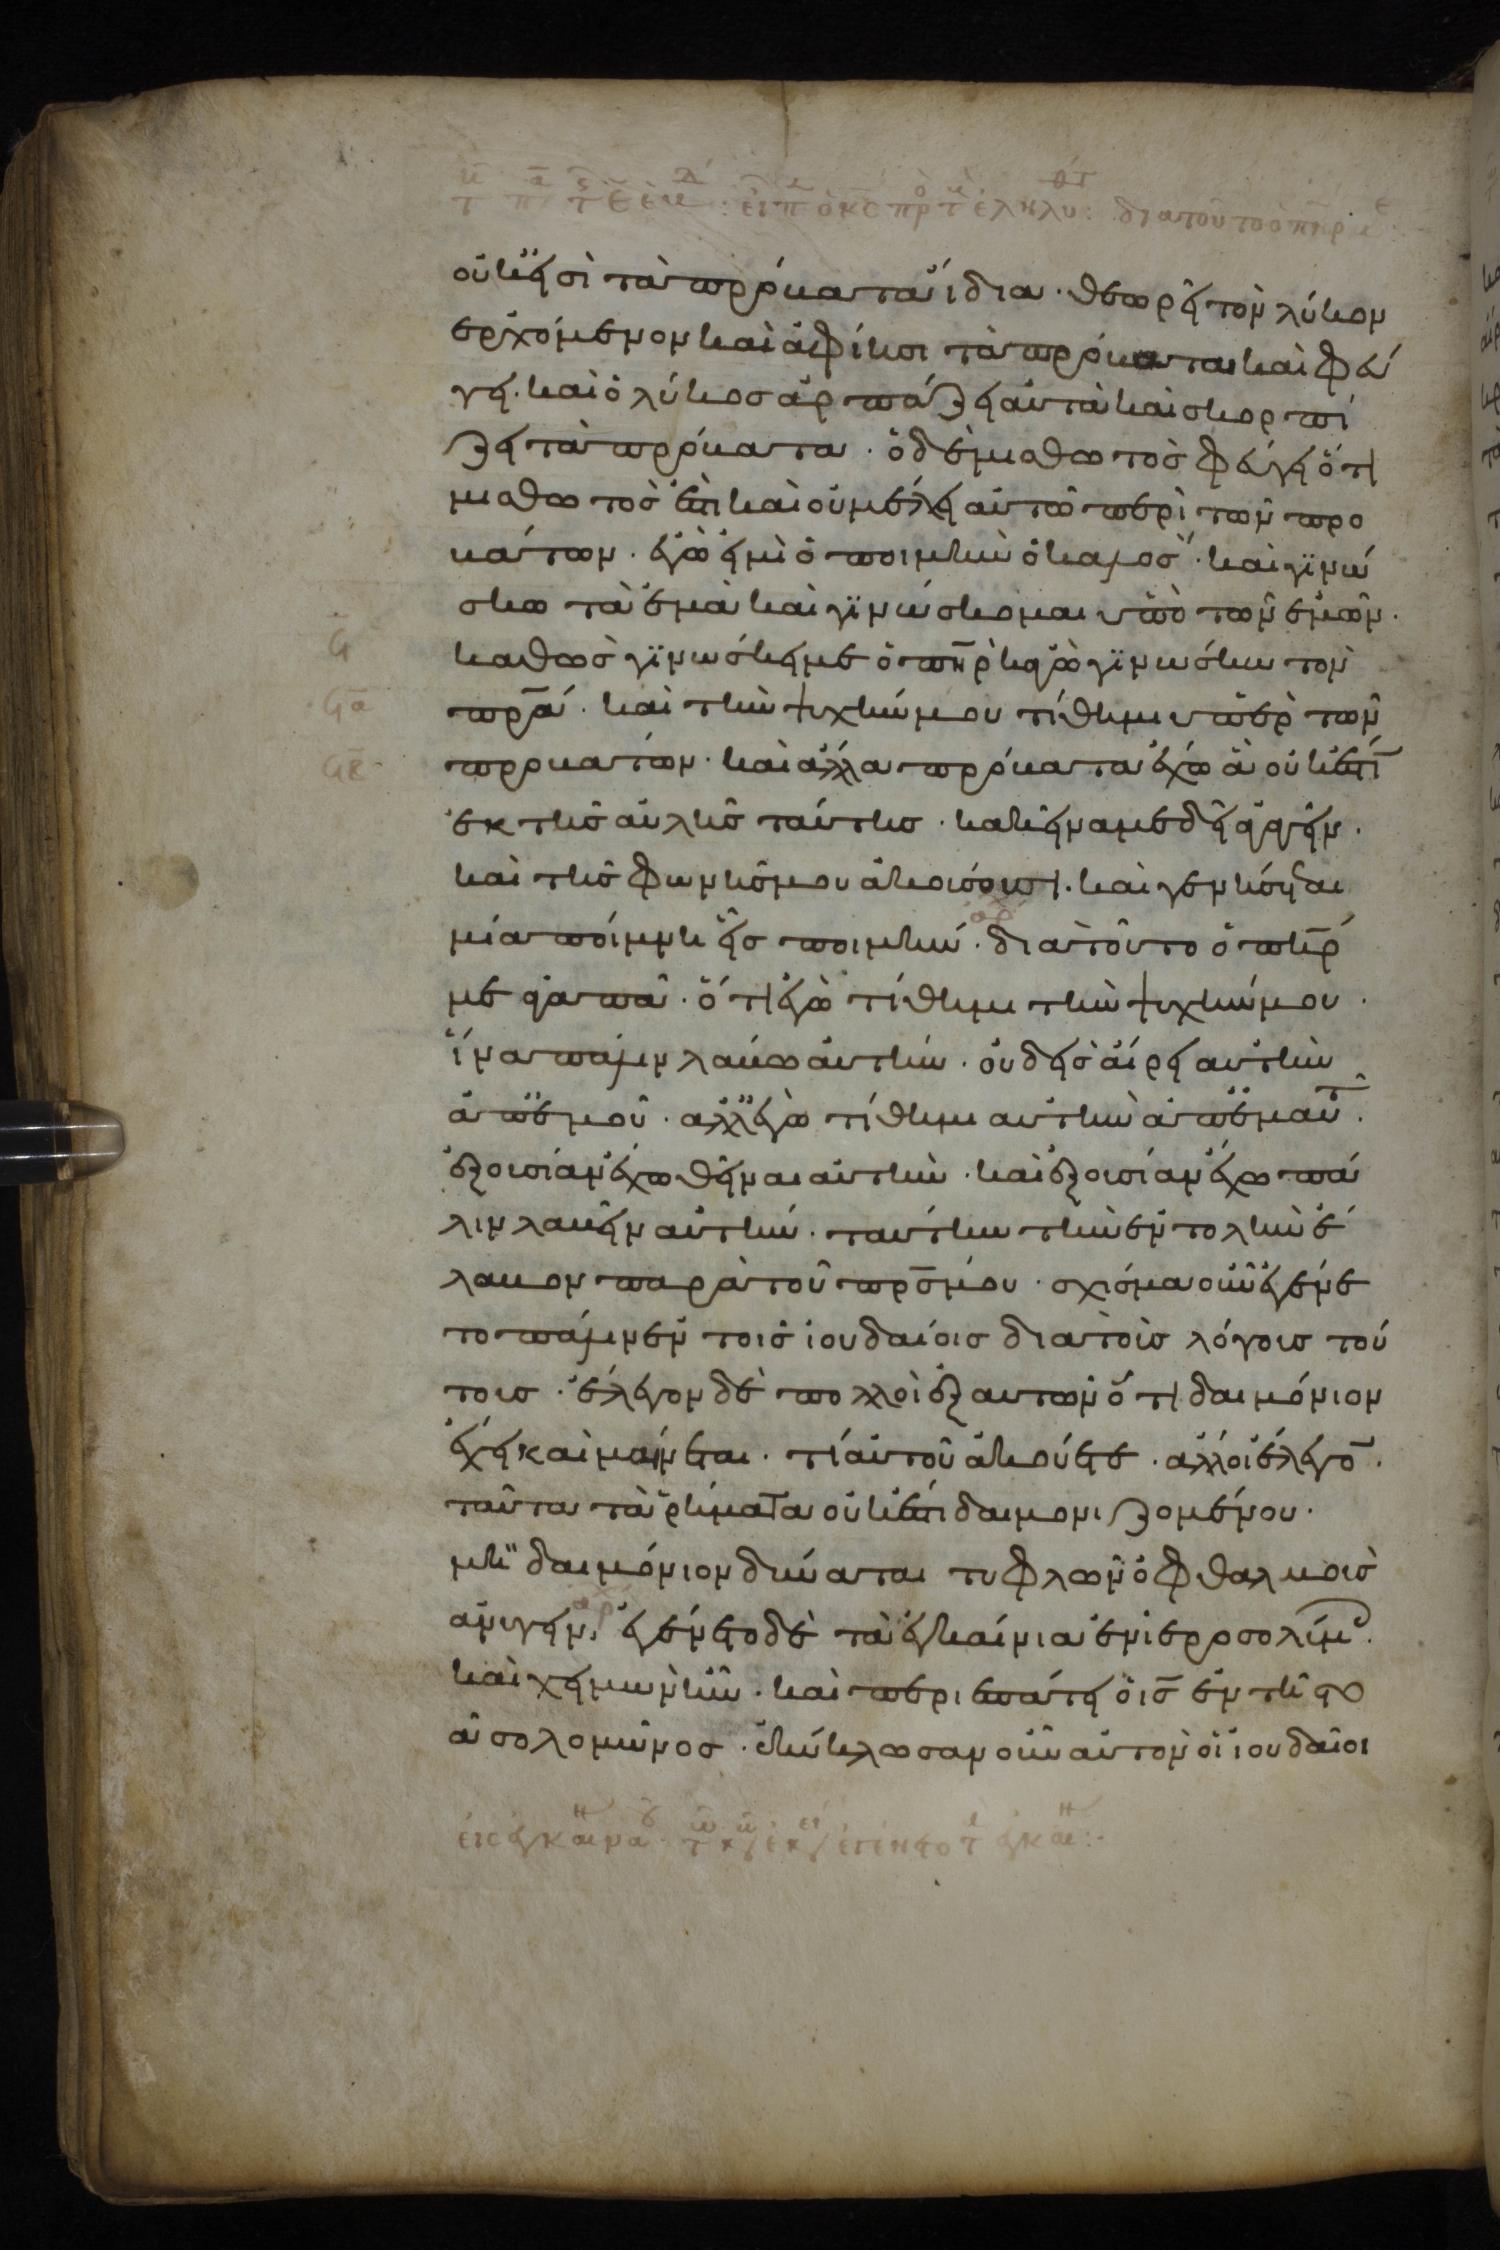 οὐκ εἰσὶ τὰ πρόβατα ἴδια · θεωρεῖ τὸν λύκον
ερχόμενον καὶ ἀφίησι τὰ πρόβατα καὶ φεύ
γει · καὶ ὁ λύκοσ ἁρπάζει αὐτὰ καὶ σκορπί
ζει τὰ πρόβατα · ὁ δὲ μισθωτὸσ φεύγει ὅτι
μισθωτὸσ ἐστι καὶ οὐ μέλει αὐτῶ περὶ τῶν προ
βάτων · ἐγὼ εἰμὶ ὁ ποιμὴν ὁ καλοσ · καὶ γϊνώ
σκω τὰ ἐμὰ καὶ γϊνώσκομαι ὑπὸ τῶν ἐμῶν ·
καθωσ γϊνώσκει με ὁ πηρ καγὼ γϊνώσκω τὸν
πρα · καὶ τὴν ψυχήν μου τίθημι ὑπὲρ τῶν
προβάτων · καὶ ἄλλα πρόβατα ἔχω ἃ οὐκ ἔστι
ἐκ τῆσ αὐλῆσ ταύτησ · κακεῖνα με δεῖ ἀγαγεῖν ·
καὶ τῆσ φωνῆσ μου ἀκούσουσι · καὶ γενήσεται
μία ποίμνη εἷσ ποιμήν · διὰ τοῦτο ὁ πηρ
με ἀγαπᾶ · ὅτι ἐγὼ τίθημι τὴν ψυχήν μου ·
ἵνα πάλιν λάβω ἀυτήν · οὐδεὶσ ἀίρει αυτὴν
ἀπ ἐμοῦ · αλλ ἐγὼ τίθημι αυτὴν ἀπ ἐμαυτ ·
ἐξουσίαν ἔχω θεῖναι αὐτὴν · καὶ ἐξουσίαν ἔχω πά
λιν λαβεῖν αὐτήν · ταύτην τὴν ἐντολὴν ἔ
λαβον παρὰ τοῦ πρσ μου · σχίσμα οὖν ἐγένε
το πάλιν ἐν τοισ ἰουδαίοισ διὰ τοὺσ λόγουσ τού
τουσ · ἔλεγον δὲ πολλοὶ ἐξ αυτῶν ὅτι δαιμόνιον
ἔχει και μαίνεται · τί ἀυτοῦ ἀκούετε · ἄλλοι ἔλεγο ·
ταῦτα τὰ ῥήματα οὐκ ἔστι δαιμονιζομένου ·
μὴ δαιμόνιον δύναται τυφλῶν ὀφθαλμοὺσ
ἀνιγειν · ἐγένετο δὲ τὰ ἐγκαίνια ἐν ἱεροσολύμ ·
καὶ χειμὼν ἦν · καὶ περιεπάτει ὁ ισ ἐν τῆ στο
ᾶ σολομῶνοσ · ἐκύκλωσαν οὖν αὐτὸν οἱ ἰουδαῖοι